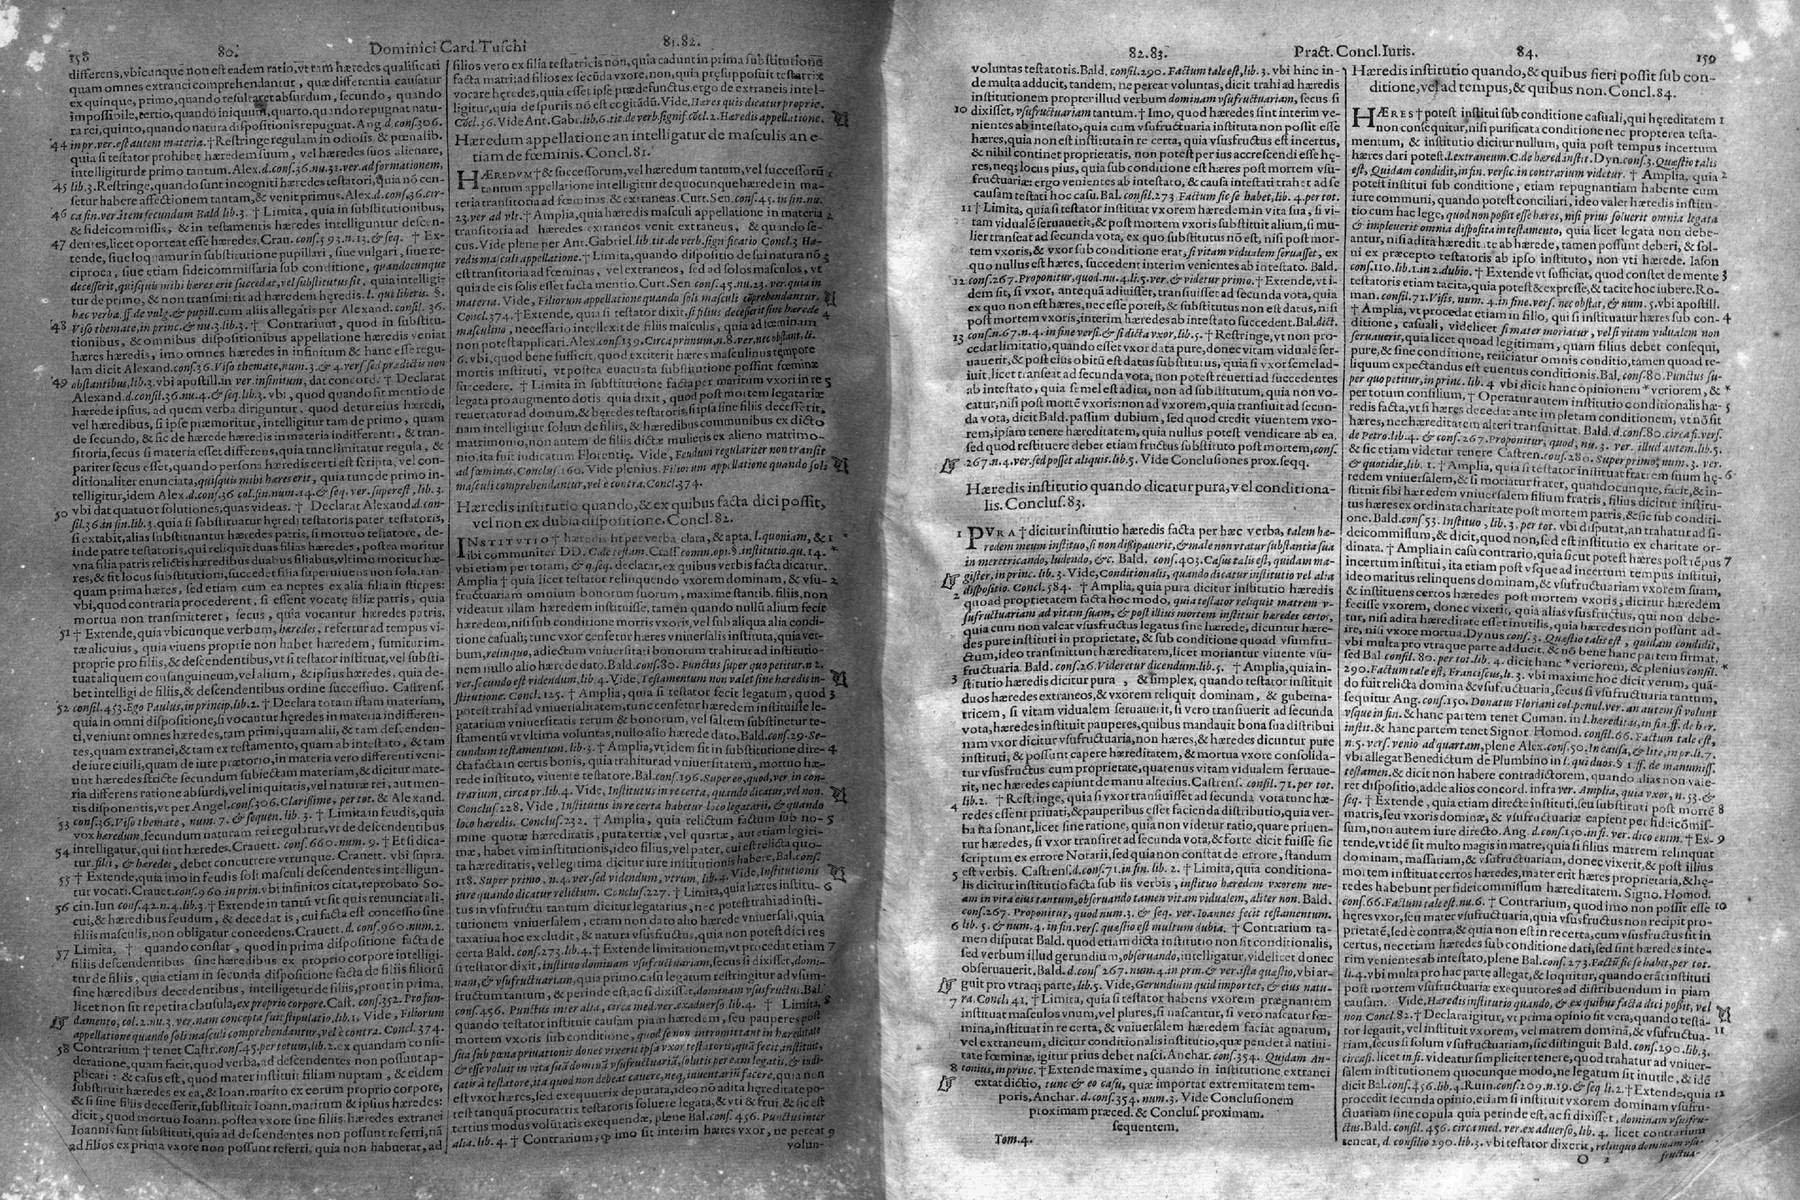 158 80. Dominici Card. Tuschi 81.82.
differens, vbicunque non est eadem ratio, vt tam hæredes qualificati
quam omnes extranei comprehendantur, quæ differentia causatur
ex quinque, primo, quando resultaret absurdum, secundo, quando
impossibile, tertio, quando iniquum, quarto, quando repugnat natu-
ra rei, quinto, quando natura dispositionis repugnat. Ang. d. cons. 306.
44 in pr. ver. est autem materia. † Restringe regulam in odiosis, & pœnalib.
quia si testator prohibet hæredem suum, vel hæredes suos alienare,
intelligitur de primo tantum. Alex. d. cons. 36. nu. 31. ver. ad formationem,
45 lib. 3. Restringe, quando sunt incogniti hæredes testatori, quia nō cen-
setur habere affectionem tantam, & venit primus. Alex. d. cons. 36. cir-
46 ca fin. ver. item secundum Bald. lib. 3. † Limita, quia in substitutionibus,
& fideicommissis, & in testamentis hæredes intelliguntur descen-
47 dentes, licet oporteat esse hæredes. Crau. cons. 593. n. 13. & seq. † Ex-
tende, siue loquamur in substitutione pupillari, siue vulgari, siue re-
ciproca, siue etiam fideicommissaria sub conditione, quandocunque
decesserit, quisquis mihi hæres erit succedat, vel substitutus sit, quia intelligi-
tur de primo, & non transmittit ad hæredem hæredis. l. qui liberis. §.
hæc verba. ff. de vulg. & pupill. cum aliis allegatis per Alexand. cons. 36.
48 Viso themate, in princ. & nu. 3. lib. 3. † Contrarium, quod in substitu-
tionibus, & omnibus dispositionibus appellatione hæredis veniat
hæres hæredis, imo omnes hæredes in infinitum & hanc esse regu-
lam dicit Alexand. cons. 36. Viso themate, num. 3. & 4. vers. sed prædictis non
49 obstantibus, lib. 3. vbi apostill. in ver. infinitum, dat concord. † Declarat
Alexand. d. cons. 36. nu. 4. & seq. lib. 3. vbi, quod quando fit mentio de
hærede ipsius, ad quem verba diriguntur, quod detur eius hæredi,
vel hæredibus, si ipse præmoritur, intelligitur tam de primo, quam
de secundo, & sic de hærede hæredis in materia indifferenti, & tran-
sitoria, secus si materia esset differens, quia tunc limitatur regula, &
pariter secus esset, quando persona hæredis certi est scripta, vel con-
ditionaliter enunciata, quisquis mihi hæres erit, quia tunc de primo in-
telligitur, idem Alex. d. cons. 36. col. fin. num. 14. & seq. ver. superest, lib. 3.
50 vbi dat quatuor solutiones, quas videas. † Declarat Alexand. d. con-
sil. 36. in fin. lib. 3. quia si substituatur hęredi testatoris pater testatoris,
si extabit, alias substituantur hæredes patris, si mortuo testatore, de-
inde patre testatoris, qui reliquit duas filias hæredes, postea moritur
vna filia patris relictis hæredibus duabus filiabus, vltimo moritur hæ-
res, & fit locus substitutioni, succedet filia superuiuens non sola, tan-
quam prima hæres, sed etiam cum ea neptes ex alia filia in stirpes:
vbi, quod contraria procederent, si essent vocatę filiæ patris, quia
mortua non transmitteret, secus, quia vocantur hæredes patris.
51 † Extende, quia vbicunque verbum, hæredes, refertur ad tempus vi-
tæ alicuius, quia viuens proprie non habet hæredem, sumitur im-
proprie pro filiis, & descendentibus, vt si testator instituat, vel substi-
tuat aliquem consanguineum, vel alium, & ipsius hæredes, quia de-
bet intelligi de filiis, & descendentibus ordine successiuo. Castrens.
52 consil. 453. Ego Paulus, in princip. lib. 2. † Declara totam istam materiam,
quia in omni dispositione, si vocantur hęredes in materia indifferen-
ti, veniunt omnes hæredes, tam primi, quam alii, & tam descenden-
tes, quam extranei, & tam ex testamento, quam ab intestato, & tam
de iure ciuili, quam de iure prætorio, in materia vero differenti veni-
unt hæredes stricte secundum subiectam materiam, & dicitur mate-
ria differens ratione absurdi, vel iniquitatis, vel naturæ rei, aut men-
tis disponentis, vt per Angel. cons. 306. Clarissime, per tot. & Alexand.
53 cons. 36. Viso themate, num. 7. & sequen. lib. 3. † Limita in feudis, quia
vox hæredum, secundum naturam rei regulatur, vt de descendentibus
54 intelligatur, qui sint hæredes. Crauett. cons. 660. num. 9. † Et si dica-
tur, filii, & hæredes, debet concurrere vtrunque. Crauett. vbi supra.
55 † Extende, quia imo in feudis soli masculi descendentes intelligun-
tur vocati. Crauet. cons. 960. in prin. vbi infinitos citat, reprobato So-
56 cin. Iun. cons. 42. n. 4. lib. 3. † Extende in tantū vt sit quis renunciat ali-
cui, & hæredibus feudum, & decedat is, cui facta est concessio sine
filiis masculis, non obligatur concedens. Crauett. d. cons. 960. num. 2.
57 Limita, † quando constat, quod in prima dispositione facta de
filiis descendentibus sine hæredibus ex proprio corpore intelligi-
tur de filiis, quia etiam in secunda dispositione facta de filiis filiorū
sine hæredibus decedentibus, intelligetur de filiis, prout in prima,
licet non sit repetita clausula, ex proprio corpore. Cast. cons. 352. Profun-
damento, col. 2. nu. 3. ver. nam concepta fuit stipulatio, lib. 1. Vide, Filiorum
appellatione quando soli masculi comprehendantur, vel è contra. Concl. 374.
58 Contrarium † tenet Castr. cons. 45. per totum, lib. 2. ex quandam consi-
deratione, quam facit, quod verba, ad descendentes non possunt ap-
plicari: & casus est, quod mater instituit filiam nuptam, & eidem
substituit hæredes ex ea, & Ioan. marito ex eorum proprio corpore,
& si sine filiis decesserit, substituit Ioann. maritum & ipsius hæredes:
dicit, quod mortuo Ioann. postea vxore sine filiis hæredes extranei
Ioannis sunt substituti, quia ad descendentes non possunt referri, nā
ad filios ex prima vxore non possunt referri, quia non habuerat, ad
filios vero ex filia testatricis non, quia cadunt in prima substitutione
facta matri: ad filios ex secūda vxore, non, quia pręsupposuit testatrix
vocare hęredes, quia esset ipse prædefunctus. ergo de extraneis intel-
ligitur, quia de spuriis nō est cogitādū. Vide, Hæres quis dicatur proprie.
Cōcl. 36. Vide Ant. Gabr. lib. 6. tit. de verb. signif. cōcl. 2. Hæredis appellatione.
Hæredum appellatione an intelligatur de masculis an e-
tiam de fœminis. Concl. 81.
HÆREDVM † & successorum, vel hæredum tantum, vel successorū 1
tantum appellatione intelligitur de quocunque hærede in ma-
teria transitoria ad fœminas, & extraneas. Curt. Sen. cons. 45. in fin. nu.
23. ver. ad vlt. † Amplia, quia hæredis masculi appellatione in materia 2
transitoria ad hæredes extraneos venit extraneus, & quando se-
cus. Vide plene per Ant. Gabriel. lib. tit. de verb. significatio. Concl. 3. Hæ-
redis masculi appellatione. † Limita, quando dispositio de sui natura nō 3
est transitoria ad fœminas, vel extraneos, sed ad solos masculos, vt
quia de eis solis esset facta mentio. Curt. Sen. cons. 45. nu. 23. ver. quia in
materia. Vide, Filiorum appellatione quando soli masculi cōprehendantur.
Concl. 374. † Extende, quia si testator dixit, si filius decesserit sine hærede 4
masculino, necessario intellexit de filiis masculis, quia ad fœminam
non potest applicari. Alex. cons. 139. Circa primum, n. 8. ver. nec obstant, li.
6. vbi, quod bene sufficit, quod extiterit hæres masculinus tempore
mortis instituti, vt postea euacuata substitutione possint fœminæ
succedere. † Limita in substitutione facta per maritum vxori in re 5
legata pro augmento dotis quia dixit, quod post mortem legatariæ
reuertatur ad domum, & hęredes testatoris, si ipsa sine filiis decesserit,
nam intelligitur solum de filiis, & hæredibus communibus ex dicto
matrimonio, non autem de filiis dictæ mulieris ex alieno matrimo-
nio, ita fuit iudicatum Florentiæ. Vide, Feudum regulariter non transit
ad fœminas, Conclus. 160. Vide plenius. Filiorum appellatione quando soli
masculi comprehendantur, vel è contra. Concl. 374.
Hæredis institutio quando, & ex quibus facta dici possit,
vel non ex dubia dispositione. Concl. 82.
INSTITVTIO † hæredis fit per verba clara, & apta. l. quoniam, & 1
ibi communiter DD. C. de testam. Crass. comm. opi. §. institutio. qu. 14. *
vbi etiam per totam, & q. seq. declarat, ex quibus verbis facta dicatur.
Amplia † quia licet testator relinquendo vxorem dominam, & vsu- 2
fructuariam omnium bonorum suorum, maxime stantib. filiis, non
videatur illam hæredem instituisse, tamen quando nullū alium fecit
hæredem, nisi sub conditione mortis vxoris, vel sub aliqua alia condi-
tione casuali; tunc vxor censetur hæres vniuersalis instituta, quia ver-
bum, relinquo, adiectum vniuersitati bonorum trahitur ad institutio-
nem nullo alio hærede dato. Bald. cons. 80. Punctus super quo petitur. n. 2.
ver. secundo est videndum, lib. 4. Vide, Testamentum non valet sine hæredis in-
stitutione. Concl. 125. † Amplia, quia si testator fecit legatum, quod 3
potest trahi ad vniuersalitatem, tunc censetur hæredem instituisse le-
gatarium vniuersitatis rerum & bonorum, vel saltem substinetur te-
stamentū vt vltima voluntas, nullo alio hærede dato. Bald. cons. 29. Se-
cundum testamentum. lib. 3. † Amplia, vt idem sit in substitutione dire- 4
cta facta in certis bonis, quia trahitur ad vniuersitatem, mortuo hæ-
rede instituto, viuente testatore. Bal. cons. 196. Super eo, quod, ver. in con-
trarium, circa pr. lib. 4. Vide, Institutus in re certa, quando dicatur, vel non.
Conclus. 228. Vide, Institutus in re certa habetur loco legatarii, & quando
loco hæredis. Conclus. 232. † Amplia, quia relictum factum sub no- 5
mine quotæ hæreditatis, puta tertiæ, vel quartæ, aut etiam legiti-
mæ, habet vim institutionis, ideo filius, vel pater, cui est relicta quo-
ta hæreditatis, vel legitima dicitur iure institutionis habere, Bal. cons.
118. Super primo. n. 4. ver. sed videndum, vtrum, lib. 4. Vide, Institutionis
iure quando dicatur relictum. Conclus. 227. † Limita, quia hæres institu- 6
tus in vsufructu tantum dicitur legatarius, nec potest trahi ad insti-
tutionem vniuersalem, etiam non dato alio hærede vniuersali, quia
taxatiua hoc excludit, & natura vsusfructus, quia non potest dici res
certa Bald. cons. 273. lib. 4. † Extende limitationem, vt procedat etiam 7
si testator dixit, instituo dominam vsufructuariam, secus si dixisset, domi-
nam, & vsufructuariam, quia primo casu legatum restringitur ad vsum-
fructum tantum, & perinde est, ac si dixisset, dominam vsusfructus. Bal.
cons. 456. Punctus inter alia, circa med. ver. ex aduerso lib. 4. † Limita, 8
quando testator instituit causam piam hæredem, seu pauperes post
mortem vxoris sub conditione, quod se non intromittant in hæreditate
sua sub pœna priuationis donec vixerit ipsa vxor testatoris, quā fecit, instituit,
& esse voluit in vita sua dominā vsufructuariā, solutis per eam legatis, & iudi-
catis à testatore, ita quod non debeat cauere, neq; inuentariū facere, quia non
est vxor hæres, sed exequutrix deputata, ideo nō adita hęreditate po-
test tanquā procuratrix testatoris soluere legata, & vti & frui, & sic est
tertius modus voluntatis exequendæ, plene Bal. cons. 456. Punctus inter
alia. lib. 4. † Contrarium, ꝙ imo sit interim hæres vxor, ne pereat 9
volun-
82.83. Pract. Concl. Iuris. 84. 159
voluntas testatoris. Bald. consil. 290. Factum tale est, lib. 3. vbi hinc in-
de multa adducit, tandem, ne pereat voluntas, dicit trahi ad hæredis
institutionem propter illud verbum dominam vsufructuariam, secus si
10 dixisset, vsufructuariam tantum. † Imo, quod hæredes sint interim ve-
nientes ab intestato, quia cum vsufructuaria instituta non possit esse
hæres, quia non est instituta in re certa, quia vsusfructus est incertus,
& nihil continet proprietatis, non potest per ius accrescendi esse hę-
res, neq; locus pius, quia sub conditione est hæres post mortem vsu-
fructuariæ: ergo venientes ab intestato, & causa intestati trahet ad se
causam testati hoc casu. Bal. consil. 273. Factum sic se habet, lib. 4. per tot.
11 † Limita, quia si testator instituat vxorem hæredem in vita sua, si vi-
tam vidualē seruauerit, & post mortem vxoris substituit alium, si mu-
lier transeat ad secunda vota, ex quo substitutus nō est, nisi post mor-
tem vxoris, & vxor sub conditione erat, si vitam vidualem seruasset, ex
quo nullus est hæres, succedent interim venientes ab intestato. Bald.
12 cons. 267. Proponitur, quod. nu. 4. li. 5. ver. & videtur primo. † Extende, vt i-
dem sit, si vxor, antequā adiuisset, transiuisset ad secunda vota, quia
ex quo non est hæres, nec esse potest, & substitutus non est datus, nisi
post mortem vxoris, interim hæredes ab intestato succedent. Bal. dict.
13 cons. n. 67. n. 4. in fine versi. & si dicta vxor, lib. 5. † Restringe, vt non pro-
cedat limitatio, quando esset vxor data pure, donec vitam vidualē ser-
uauerit, & post eius obitū est datus substitutus, quia si vxor semel ad-
iuit, licet transeat ad secunda vota, non potest reuerti ad succedentes
ab intestato, quia semel est adita, non ad substitutum, quia non vo-
catur, nisi post mortē vxoris: non ad vxorem, quia transiuit ad secun-
da vota, dicit Bald. passium dubium, sed quod credit viuentem vxo-
rem, ipsam tenere hæreditatem, quia nullus potest vendicare ab ea,
sed quod restituere debet etiam fructus substituto post mortem, cons.
267. n. 4. ver. sed posset aliquis. lib. 5. Vide Conclusiones prox. seqq.
Hæredis institutio quando dicatur pura, vel conditiona-
lis. Conclus. 83.
1 PVRA † dicitur institutio hæredis facta per hæc verba, talem hæ-
redem meum instituo, si non dissipauerit, & male non vtatur substantia sua
in meretricando, ludendo, &c. Bald. cons. 403. Casus talis est, quidam ma-
gister, in princ. lib. 3. Vide, Conditionalis, quando dicatur institutio vel alia
2 dispositio. Concl. 584. † Amplia, quia pura dicitur institutio hæredis
quoad proprietatem facta hoc modo, quia testator reliquit matrem v-
sufructuariam ad vitam suam, & post illius mortem instituit hæredes certos,
quia cum non valeat vsusfructus legatus sine hærede, dicuntur hære-
des pure instituti in proprietate, & sub conditione quoad vsumfru-
ctum, ideo transmittunt hæreditatem, licet moriantur viuente vsu-
fructuaria. Bald. cons. 26. Videretur dicendum. lib. 5. † Amplia, quia in-
3 stitutio hæredis dicitur pura, & simplex, quando testator instituit
duos hæredes extraneos, & vxorem reliquit dominam, & guberna-
tricem, si vitam vidualem seruauerit, si vero transiuerit ad secunda
vota, hæredes instituit pauperes, quibus mandauit bona sua distribui
nam vxor dicitur vsufructuaria, non hæres, & hæredes dicuntur pure
instituti, & possunt capere hæreditatem, & mortua vxore consolida-
tur vsusfructus cum proprietate, quatenus vitam vidualem seruaue-
rit, nec hæredes capiunt de manu alterius. Castrens. consil. 71. per tot.
4 lib. 2. † Restringe, quia si vxor transiret ad secunda vota tunc hæ-
redes essent priuati, & pauperibus esset facienda distributio, quia ver-
ba ita sonant, licet sine ratione, quia non videtur ratio, quare priuen-
tur hæredes, si vxor transiret ad secunda vota, & forte dicit fuisse sic
scriptum ex errore Notarii, sed quia non constat de errore, standum
5 est verbis. Castrens. d. cons. 71. in fin. lib. 2. † Limita, quia conditiona-
lis dicitur institutio facta sub iis verbis, instituo hæredem vxorem me-
am in vita eius tantum, obseruando tamen vitam vidualem, aliter non. Bald.
cons. 267. Proponitur, quod num. 3. & seq. ver. Ioannes fecit testamentum.
6 lib. 5. & num. 4. in fin. vers. quæstio est multum dubia. † Contrarium ta-
men disputat Bald. quod etiam dicta institutio non sit conditionalis,
sed verbum illud gerundium, obseruando, intelligatur, videlicet donec
obseruauerit, Bald. d. cons. 267. num. 4. in prin. & ver. ista quæstio, vbi ar-
guit pro vtraq; parte, lib. 5. Vide, Gerundium quid importet, & eius natu-
7 ra. Concl. 41. † Limita, quia si testator habens vxorem prægnantem
instituat masculos vnum, vel plures, si nascantur, si vero nascatur fœ-
mina, instituat in re certa, & vniuersalem hæredem faciat agnatum,
vel extraneum, dicitur conditionalis institutio, quæ pendet à natiui-
tate fœminæ, igitur prius debet nasci. Anchar. cons. 354. Quidam An-
8 tonius, in princ. † Extende maxime, quando in institutione extranei
extat dictio, tunc & eo casu, quæ importat extremitatem tem-
poris, Anchar. d. cons. 354. num. 3. Vide Conclusionem
proximam præced. & Conclus. proximam.
sequentem.
Tom. 4.
Hæredis institutio quando, & quibus fieri possit sub con-
ditione, vel ad tempus, & quibus non. Concl. 84.
HÆRES † potest institui sub conditione casuali, qui hęreditatem 1
non consequitur, nisi purificata conditione nec propterea testa-
mentum, & institutio dicitur nullum, quia post tempus incertum
hæres dari potest. l. extraneum. C. de hæred. instit. Dyn. cons. 3. Quæstio talis
est, Quidam condidit, in fin. versic. in contrarium videtur. † Amplia, quia 2
potest institui sub conditione, etiam repugnantiam habente cum
iure communi, quando potest conciliari, ideo valet hæredis institu-
tio cum hac lege, quod non possit esse hæres, nisi prius soluerit omnia legata
& impleuerit omnia disposita in testamento, quia licet legata non debe-
antur, nisi adita hæreditate ab hærede, tamen possunt deberi, & sol-
ui ex præcepto testatoris ab ipso instituto, non vti hærede. Iason
cons. 110. lib. 1. in 2. dubio. † Extende vt sufficiat, quod constet de mente 3
testatoris etiam tacita, quia potest & expresse, & tacite hoc iubere. Ro-
man. cons. 71. Visis, num. 4. in fine. vers. nec obstat, & num. 5. vbi apostill.
† Amplia, vt procedat etiam in filio, qui si instituatur sub con- 4
ditione, casuali, videlicet si mater moriatur, vel si vitam vidualem non
seruauerit, quia licet quoad legitimam, quam filius debet consequi,
pure, & sine conditione, reiiciatur omnis conditio, tamen quoad re-
liquum expectandus est euentus conditionis. Bal. cons. 80. Punctus su-
per quo petitur, in princ. lib. 4. vbi dicit hanc opinionem * veriorem, & *
per totum consilium. † Operatur autem institutio conditionalis hæ- 5
redis facta, vt si hæres decedat ante impletam conditionem, vt nō sit
hæres, nec hæreditatem alteri transmittat. Bald. d. cons. 80. circa fi. vers.
de Petro. lib. 4. & cons. 267. Proponitur, quod, nu. 3. ver. illud autem. lib. 5.
& sic etiam videtur tenere Castren. cons. 280. Super primo, num. 3. ver.
& quotidie, lib. 1. † Amplia, quia si testator instituat fratrem suum hę- 6
redem vniuersalem, & si moriatur frater, quandocunque, facit, & in-
stituit sibi hæredem vniuersalem filium fratris, filius dicitur institutus
ex ordinatione charitatis post mortem patris, & sic sub conditi-
one. Bald. cons. 53. Instituo, lib. 3. per tot. vbi disputat, an trahatur ad fi-
deicommissum, & dicit, quod non, sed est institutio ex charitate or-
dinata. † Amplia in casu contrario, quia sicut potest hæres post tēpus 7
incertum institui, ita etiam potest vsque ad incertum tempus institui,
ideo maritus relinquens dominam, & vsufructuariam vxorem suam,
& instituens certos hæredes post mortem vxoris, dicitur hæredem
fecisse vxorem, donec vixerit, quia alias vsusfructus, qui non debe-
tur, nisi adita hæreditate esset inutilis, quia hæredes non possunt ad-
ire, nisi vxore mortua. Dynus cons. 3. Quæstio talis est, quidam condidit,
vbi multa pro vtraque parte adducit, & nō bene hanc partem firmat,
sed Bal. consil. 80. per tot. lib. 4. dicit hanc * veriorem, & plenius consil. *
290. Factum tale est, Franciscus, li. 3. vbi maxime hoc dicit verum, quā-
do fuit relicta domina & vsufructuaria, secus si vsufructuaria tantum,
sequitur Ang. cons. 150. Donatus Floriani. col. penul. ver. an autem si voluit
vsque in fin. & hanc partem tenet Cuman. in l. hereditas, in fin. ff. de her.
instit. & hanc partem tenet Signor. Homod. cons. 66. Factum tale est,
n. 5. vers. venio ad quartam, plene Alex. cons. 50. In causa, & lite, in pr. li. 7.
vbi allegat Benedictum de Plumbino in l. qui duos. § 1. ff. de manumiss.
testamen. & dicit non habere contradictorem, quando alias non vale-
ret dispositio, adde alios concord. infra ver. Amplia, quia vxor, n. 53. &
seq. † Extende, quia etiam directe instituti, seu substituti post mortē 8
matris, seu vxoris dominæ, & vsufructuariæ capient per fideicōmis-
sum, non autem iure directo. Ang. d. cons. 150. in fi. ver. dico enim. † Ex- 9
tende, vt idē sit multo magis in matre, quia si filius matrem relinquat
dominam, massariam, & vsufructuariam, donec vixerit, & post illius
mortem instituat certos hæredes, mater erit hæres proprietaria, & hę-
redes habebunt per fideicommissum hæreditatem. Signo. Homod.
cons. 66. Factum tale est. nu. 6. † Contrarium, quod imo non possit esse 10
hęres vxor, seu mater vsufructuaria, quia vsusfructus non recipit pro-
prietatē, sed è contra, & quia non est in re certa, cum vsusfructus sit in
certus, nec etiam hæredes sub conditione dati, sed sint hæredes inte-
rim venientes ab intestato, plene Bal. cons. 273. Factū sic se habet, per tot.
li. 4. vbi multa pro hac parte allegat, & loquitur, quando erāt instituti
post mortem vsufructuariæ exequutores ad distribuendum in piam
causam. Vide, Hæredis institutio quando, & ex quibus facta dici possit, vel
non Concl. 82. † Declara igitur, vt prima opinio sit vera, quando testa-
tor legauit, vel instituit vxorem, vel matrem dominā, & vsufructua- 11
riam, secus si solum vsufructuariam, sic distinguit Bald. cons. 290. lib. 3.
circa fi. licet in fi. videatur simpliciter tenere, quod trahatur ad vniuer-
salem institutionem quocunque modo, ne legatum sit inutile, & idē
dicit Bal. cons. 456. lib. 4. Ruin. cons. 209. n. 19. & seq. li. 2. † Extende, quia 12
procedit secunda opinio, etiam si instituit vxorem dominam vsufru-
ctuariam sine copula quia perinde est, ac si dixisset, dominam vsusfru-
ctus. Bald. consil. 456. circa med. ver. ex aduerso, lib. 4. licet contrarium
teneat, d. consilio 290. lib. 3. vbi testator dixerit, relinquo dominam vsu-
O 2 fructua-